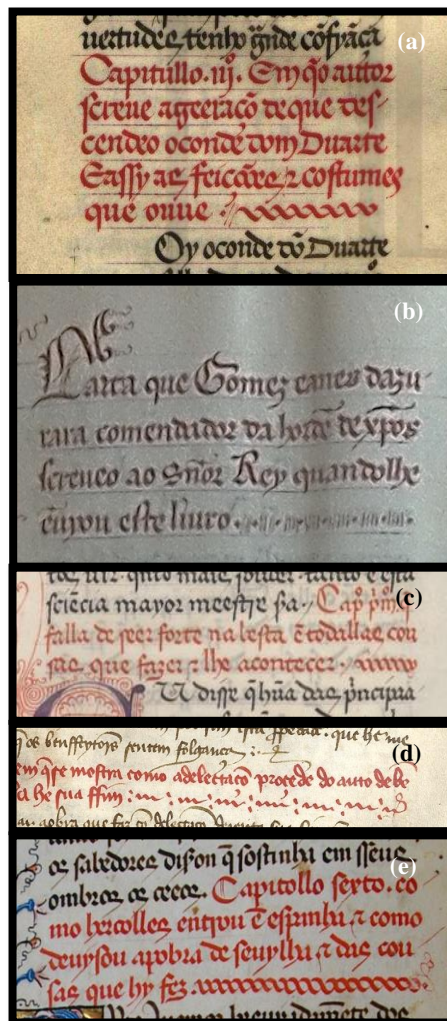 uertudes tenho g̃nde cõfyãça
(a)
Capitullo .iijº. Em q̃o autor
screue ageeraçõ deque des-
cendeo oconde dom Duarte
E assy as feiçoões ⁊ costumes
que ouue
Oy oconde dõ Duarte
(b)
Carta que Gomez eanes dazu-
rara comendador da hordẽ de xp̃os
screueo ao Sñor Rey quando lhe
enuyou este liuro
(c)
sciẽcia mayor meestre sa. Capº pm̃º
falla de seer forte na besta ẽ todallas cou
sas que fazer ⁊ lhe acontecer.
U disse q̃ hũa das p̃ncipaa
(d)
q̃ os benffeytores sentem folgança
que he me
em q̃ se mostra como adelectaçõ procede do auto de bẽ
he sua ffim
(e)
os sabedores dison q̃ sostinha em sseus
ombros os ceeos. Capitollo sexto. co
mo hercolles entrou ẽ espanha ⁊ como
deuysou apobra de seuylla ⁊ das cou
sas que hy fez